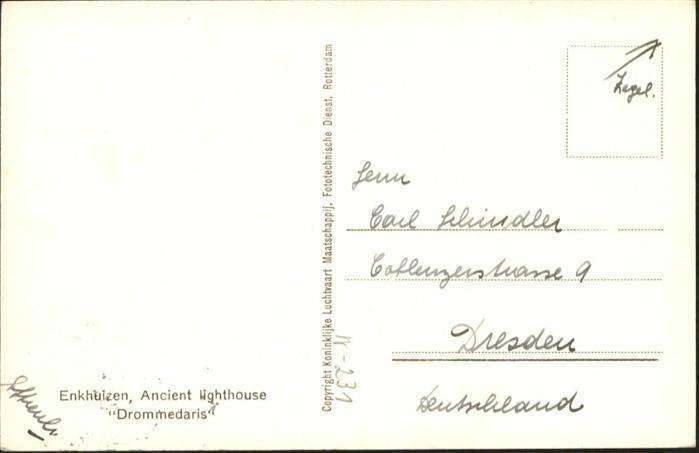 Enkhuizen, Ancient lighthouse
"Drommedaris"
Copyright Koninklijke Luchtvaart Maatschappij, Fototechnische Dienst, Rotterdam
Zegel.
Herrn
Carl Schindler
Coblenzerstrasse 9
Dresden
Deutschland